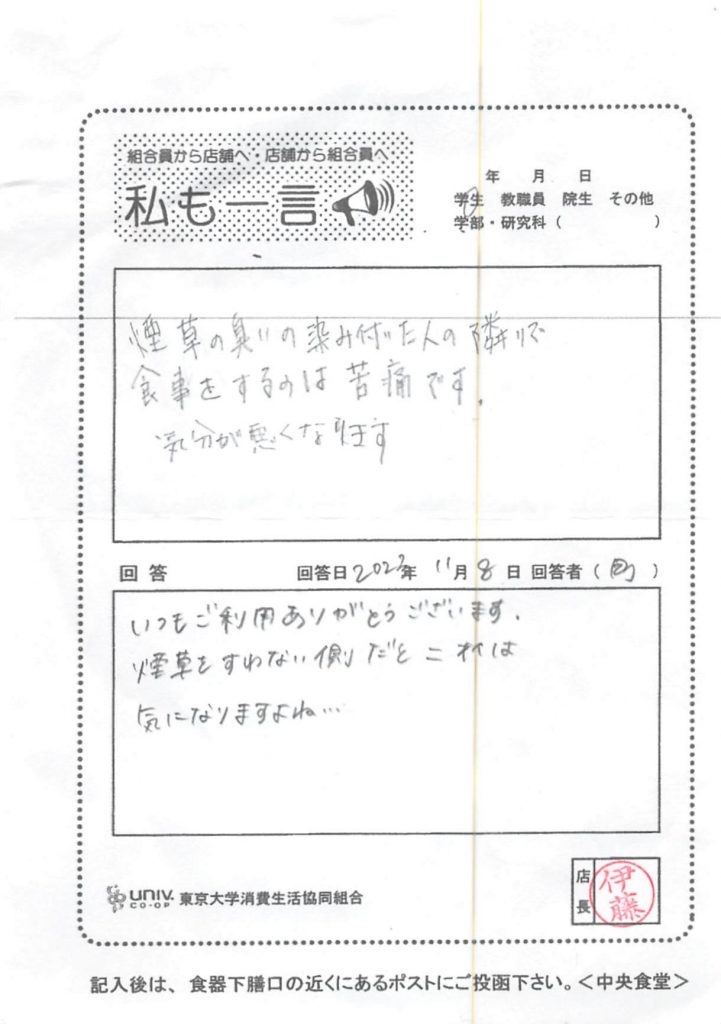 組合員から店舗へ・店舗から組合員へ
私も一言
年 月 日
学生 教職員 院生 その他
学部・研究科( )
煙草の臭いの染み付いた人の隣りで
食事をするのは苦痛です。
気分が悪くなります
回答 回答日2023年 11月8日 回答者( )
いつもご利用ありがとうございます。
煙草をすわない側だとこれは
気になりますよね…
店長 伊藤
UNIV. CO-OP 東京大学消費生活協同組合
記入後は、食器下膳口の近くにあるポストにご投函下さい。<中央食堂>